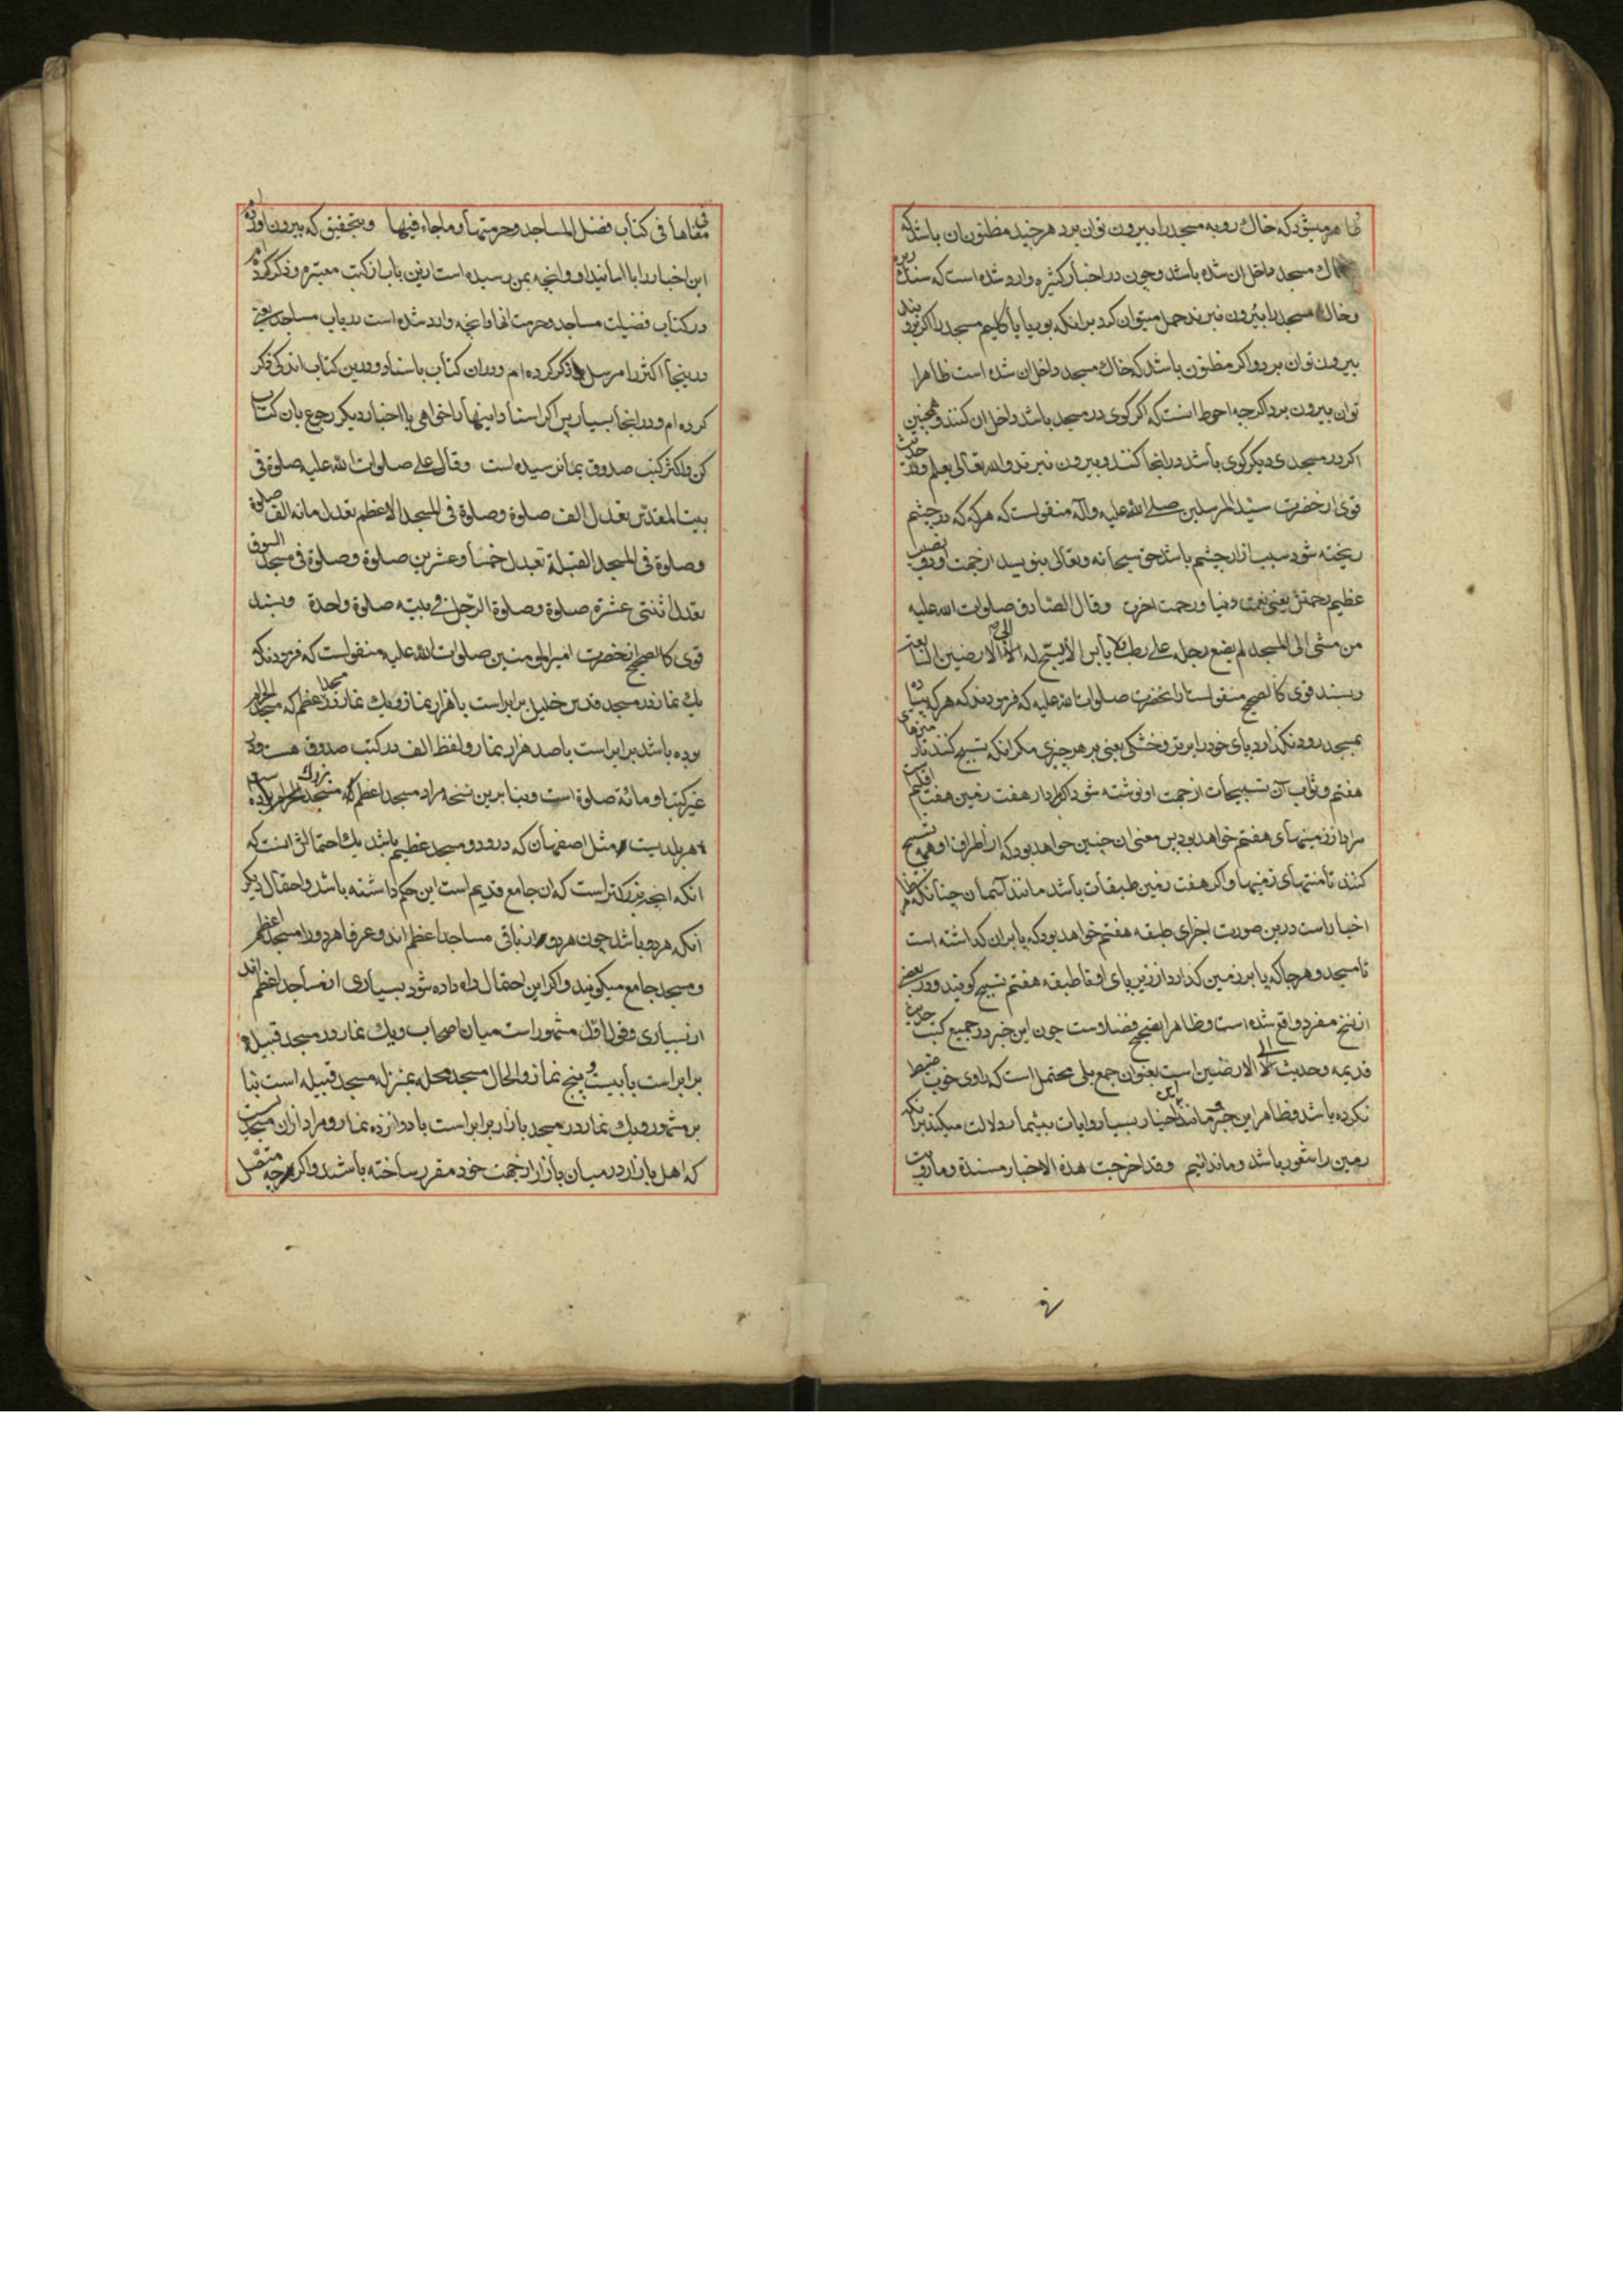 ظاهر میشود که خاک روبه مسجد را بیرون توان برد هر چند مظنون ان باشد که
خاک مسجد داخل ان شده باشد و چون در اخبار کثیره وارد شده است که سنک ریزه
و خاک مسجد را بیرون نبرند حمل میتوان کرد برانکه بوریا یا کلیم مسجد را اکر بروبند
بیرون توان برد و اکر مظنون باشد که خاک مسجد داخل ان شده است ظاهرا
توان بیرون برد اکرچه احوط انست که اکر کوی در مسجد باشد داخل ان کنند و همچنین
اکر در مسجدی دیکر کوی باشد در انجا کنند و بیرون نبرند والله تعالی یعلم و در حدیث
قوی از حضرت سید المرسلین صلی الله علیه وآله منقولست که هر که که در چشم
ریخته شود سبب ازار چشم باشد حق سبحانه وتعالی بنویسد از جهت او دو نصیب
عظیم رحمتش یعنی نعمت دنیا و رحمت اخرت وقال الصادق صلوات الله علیه
من مشی الی المسجد لم یضع رجله علی رطب ولا یابس الا یسبح له الی الارضین السابعة
و بسند قوی کالصحیح منقولست از انحضرت صلوات الله علیه که فرمودند که هر که پیاده
بمسجد رود نکذارد پای خود را بر تری و خشکی یعنی بر هر چیزی مکر انکه تسبیح کنند تا زمینهای
هفتم و ثواب آن تسبیحات از جهت او نوشته شود اکر مراد از هفت زمین هفت اقلیم است
مراد از زمینهای هفتم خواهد بود پس معنی ان چنین خواهد بود که از اطراف او همه تسبیح
کنند تا منتهای زمینها و اکر هفت زمین طبقات باشد مانند آسمان چنانکه ظاهر
اخبار است درین صورت اجزای طبقه هفتم خواهد بود که پا بران کذاشته است
تا مسجد و هر جا که پا بر زمین کذارد از زیر پای او تا طبقه هفتم تسبیح کویند و در بعضی
از نسخ مفرد واقع شده است و ظاهرا تصحیح فضلاست چون این خبر در جمیع کتب حدیث
قدیمه و حدیث الی الارضین است بعنوان جمع بلی محتمل است که راوی خوب ضبط
نکرده باشد و ظاهر این خبر و مانند این اخبار بسیار و ایات بیشمار دلالت میکند برانکه
زمین را شعور باشد و ما ندانیم وقد اخرجت هذه الاخبار مسندة وما رویت
فی معناها فی کتاب فضل المساجد وحرمتها وما جاء فیها و بتحقیق که بیرون اورده ام
این اخبار را با اسانید او و انچه بمن رسیده است درین باب از کتب معتبره و ذکر کرده ام
در کتاب فضیلت مساجد و حرمت انها و انچه وارد شده است در باب مساجد یعنی
درینجا اکثر را مرسل ذکر کرده ام و در ان کتاب باسناد و درین کتاب اندکی ذکر
کرده ام و در انجا بسیار پس اکر اسناد اینها را خواهی یا اخبار دیکر رجوع بان کتاب
کن و اکثر کتب صدوق بما نرسیده است وقال علی صلوات الله علیه صلوة فی
بیت المقدس تعدل الف صلوة وصلوة فی المسجد الاعظم تعدل مائة الف صلوة
وصلوة فی المسجد القبیلة تعدل خمسا وعشرین صلوة وصلوة فی مسجد السوق
تعدل اثنتی عشرة صلوة وصلوة الرجل فی بیته صلوة واحدة و بسند
قوی کالصحیح از حضرت امیر المومنین صلوات الله علیه منقولست که فرمودند که
یک نماز در مسجد قدس خلیل برابر است با هزار نماز و یک نماز در مسجد اعظم که مسجد الحرام
بوده باشد برابر است با صد هزار نماز و لفظ الف در کتب صدوق هست و در
غیر کتب او مائة صلوة است و بنا برین نسخه مراد مسجد اعظم که مسجد بزرک
هر بلدیست مثل اصفهان که درو دو مسجد عظیم باشد یک احتمالش انست که
انکه بزرکتر است که ان جامع قدیم است این حکم داشته باشد و احتمال دیکر
انکه هر دو باشد چون هر دو از باقی مساجد اعظم اند و عرفا هر دو را مسجد اعظم
و مسجد جامع میکویند و اکر این احتمال راه داده شود بسیاری از مساجد اعظم اند
از بسیاری و قول اول مشهور است میان اصحاب و یک نماز در مسجد قبیله
برابر است با بیست و پنج نماز و الحال مسجد محله بمنزله مسجد قبیله است بنا
بر مشهور و یک نماز در مسجد بازار برابر است با دوازده نماز و مراد ازان مسجدیست
که اهل بازار در میان بازار از جهت خود مقرر ساخته باشند و اکرچه متصل